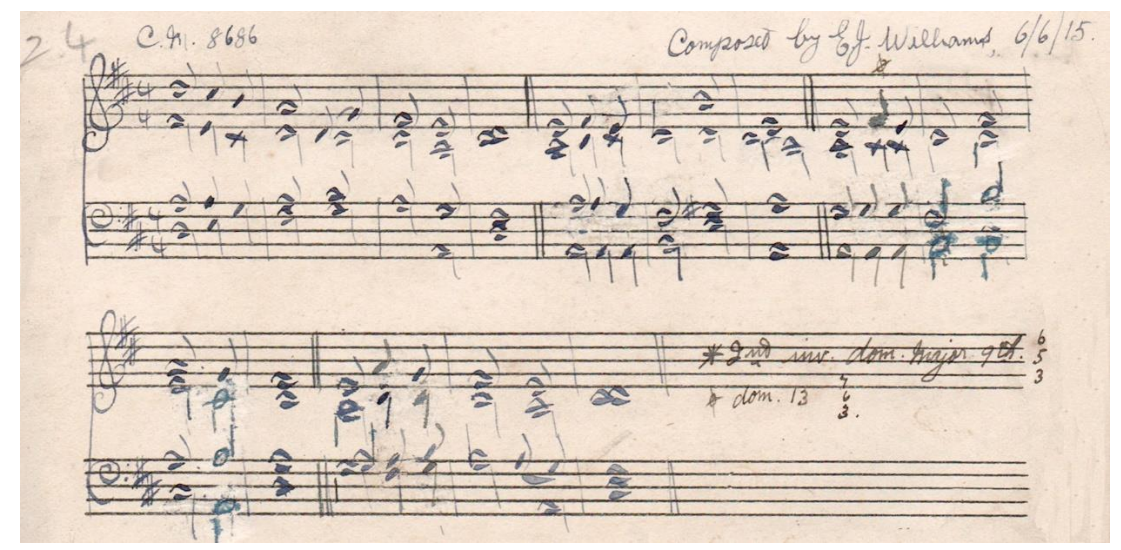 24 C.M. 8686 Composed by E.J. Williams, 6/6/15.
4 4
4 4
* 2nd inv. dom. Major 9th. 6 5 3
* dom. 13 7 6 3.